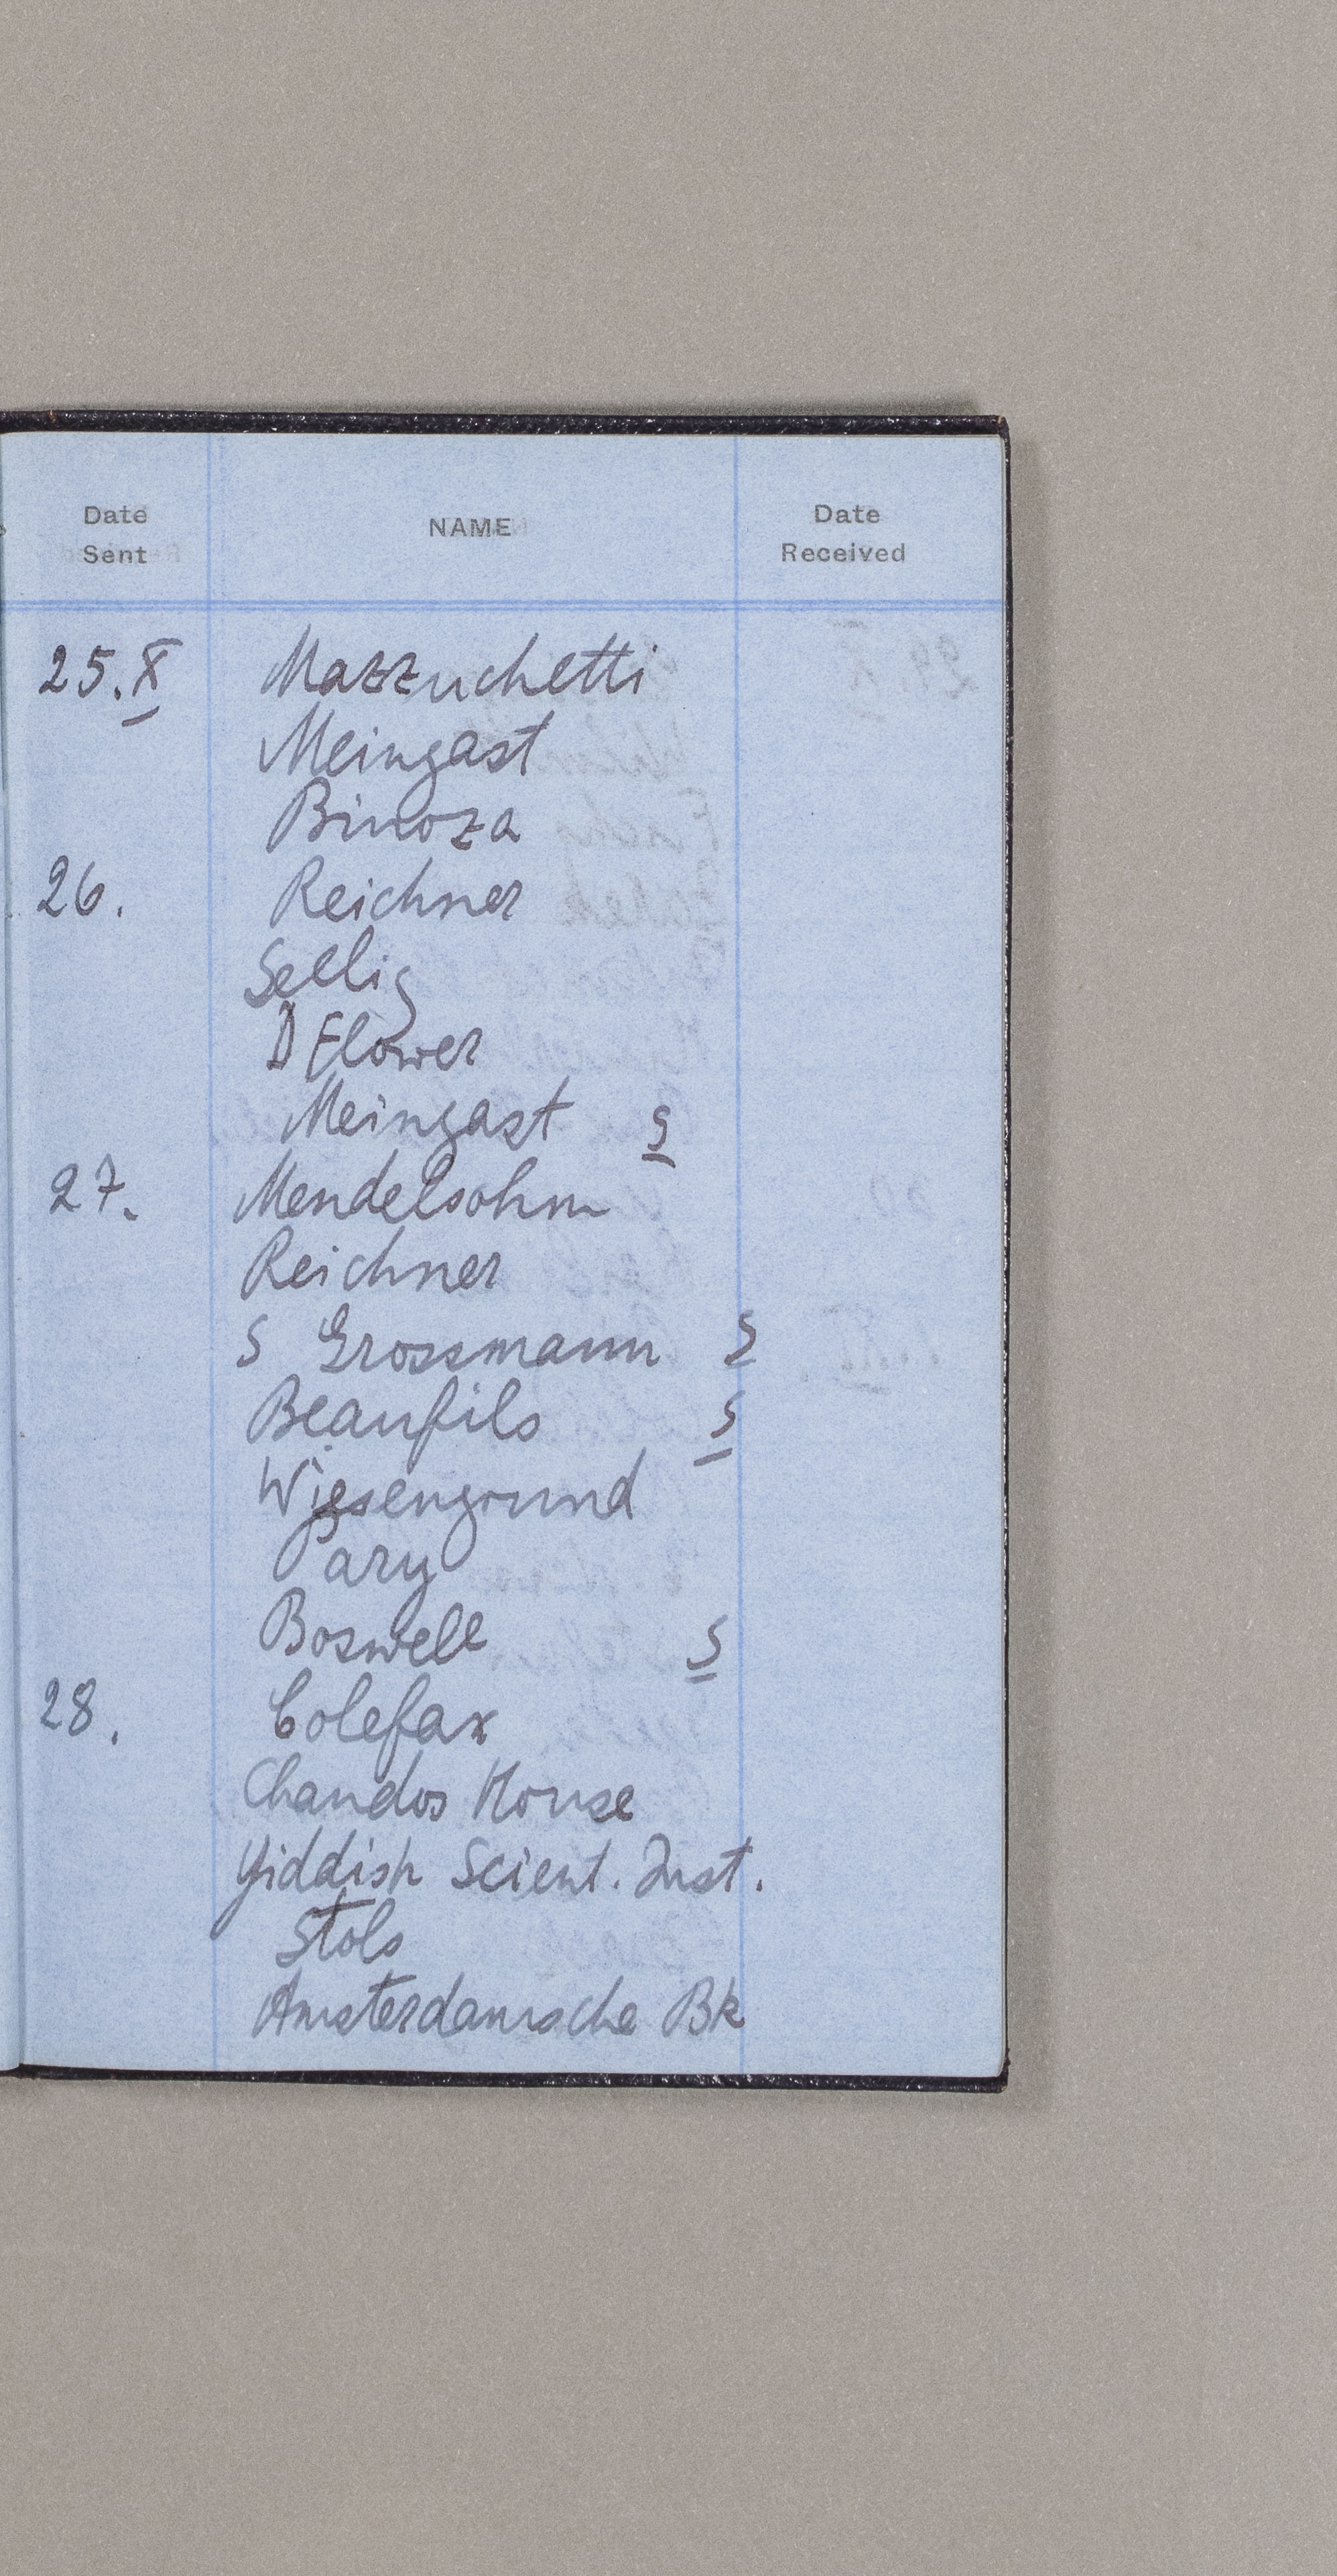 Date Sent NAME Date Received
25.X Mazzuchetti
Meingast
Binoza
26. Reichner
Sellig
D Flower
Meingast S
27. Mendelsohn
Reichner
S Grossmann S
Beaufils S
Wiesengrund
Pary
Boswell S
28. Colefax
Chandos House
Yiddish Scient. Inst.
Stols
Amsterdamsche Bk